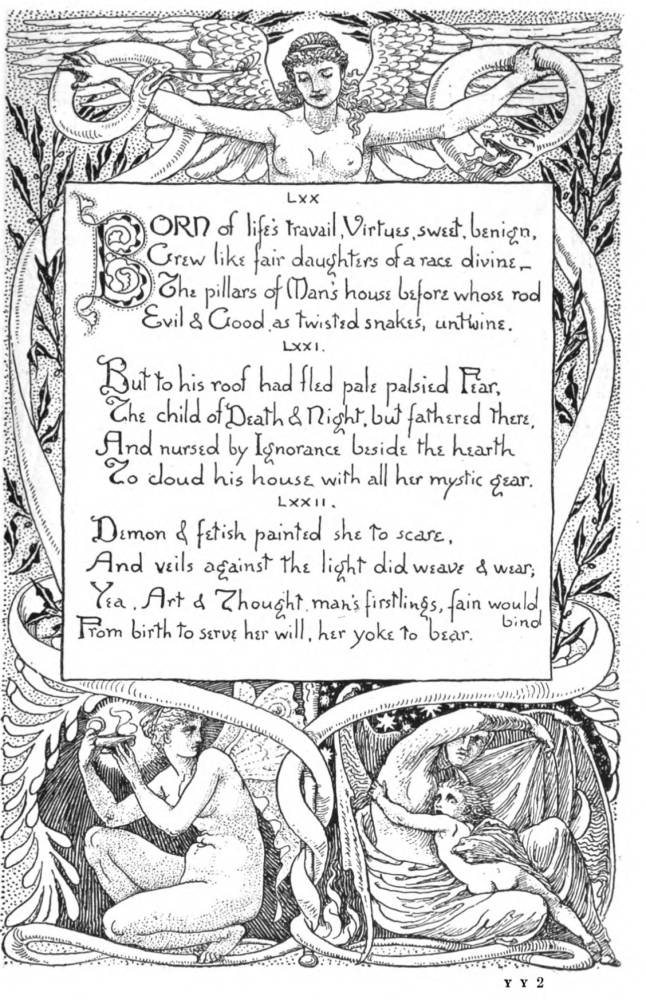 LXX
BORN of life's travail, Virtues, sweet, benign,
Grew like fair daughters of a race divine_
The pillars of Man's house before whose rod
Evil & Good, as twisted snakes, untwine.
LXXI.
But to his roof had fled pale palsied Fear,
The child of Death & Night, but fathered there,
And nursed by Ignorance beside the hearth
To cloud his house with all her mystic gear.
LXXII.
Demon & fetish painted she to scare,
And veils against the light did weave & wear;
Yea, Art & Thought, man's firstlings, fain would bind
From birth to serve her will, her yoke to bear.
YY2